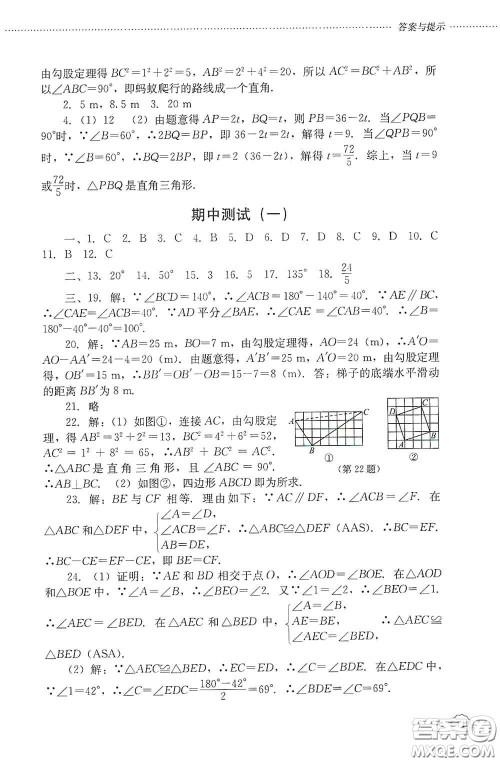 答案与提示
由勾股定理得 BC²=1²+2²=5，AB²=2²+4²=20，所以 AC²=BC²+AB²，所
以∠ABC=90°，即蚂蚁爬行的路线成一个直角.
2. 5 m，8.5 m 3. 20 m
4.（1）12 （2）由题意得 AP=2t，BQ=t，则 PB=36-2t. 当∠PQB=
90°时，∵∠B=60°，∴2BQ=BP，即 36-2t=2t，解得 t=9. 当∠QPB=90°
时，∵∠B=60°，∴BQ=2BP，即 t=2（36-2t），解得 t=72/5. 综上，当 t=9
或72/5时，△PBQ 是直角三角形.
期中测试（一）
一、1. C 2. B 3. C 4. B 5. D 6. D 7. D 8. C 9. D 10. C
11. B 12. C
二、13. 20° 14. 50° 15. 3 16. 115° 17. 135° 18. 24/5
三、19. 解：∵∠BCD=140°，∴∠ACB=180°-140°=40°. ∵AE∥BC，
∴∠CAE=∠ACB=40°. ∵AD 平分∠BAE，∴∠CAE=∠CAB=40°. ∴∠B=
180°-40°-40°=100°.
20. 解：∵AB=25 m，BO=7 m，由勾股定理得，AO=24（m），∴A′O=
AO-AA′=24-4=20（m）. 由题意得，A′B′=25 m，A′O=20 m，由勾股定理
得，OB′=15 m，∴BB′=OB′-OB=15-7=8（m）. 答：梯子的底端水平滑动
的距离 BB′为 8 m.
21. 略
22. 解：（1）如图①，连接 AC，由勾股定
理，得 AB²=3²+2²=13，BC²=4²+6²=52，
AC²=1²+8²=65，∴AB²+BC²=AC².
∴△ABC 是直角三角形，且∠ABC=90°.
∴AB⊥BC.（2）如图②，四边形 ABCD 即为所求.
A
B
C
①
A
②
（第 22 题）
23. 解：BE 与 CF 相等. 理由如下：∵AC∥DF，∴∠ACB=∠F. 在
△ABC 和△DEF 中，{∠A=∠D，∠ACB=∠F，AB=DE，∴△ABC≌△DEF（AAS）. ∴BC=EF.
∴BC-CE=EF-CE，即 BE=CF.
24.（1）证明：∵AE 和 BD 相交于点 O，∴∠AOD=∠BOE. 在△AOD
和△BOE 中，∵∠A=∠B，∴∠BEO=∠2. 又∵∠1=∠2，∴∠1=∠BEO.
∴∠AEC=∠BED. 在△AEC 和△BED 中，{∠A=∠B，AE=BE，∠AEC=∠BED，∴△AEC≌
△BED（ASA）.
（2）解：∵△AEC≌△BED，∴EC=ED，∠C=∠BDE. 在△EDC 中，
∵∠1=42°，∴∠C=∠EDC=（180°-42°）/2=69°. ∴∠BDE=∠C=69°.